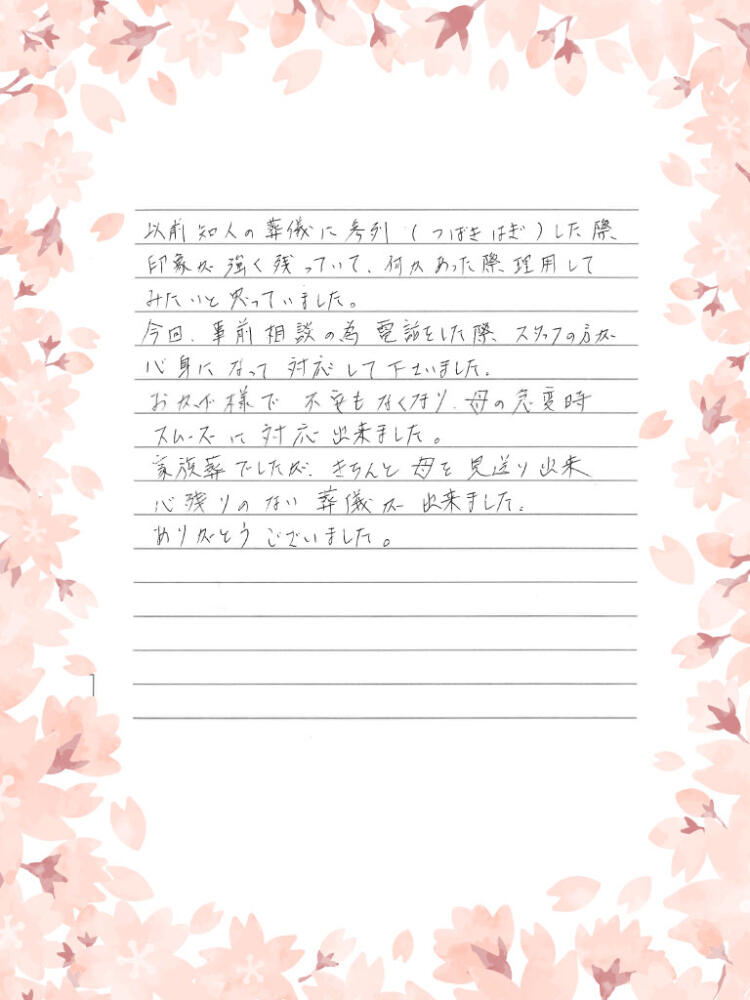 以前知人の葬儀に参列(つばきはぎ)した際、
印象が強く残っていて、何かあった際、理用して
みたいと思っていました。
今回、事前相談の為電話をした際、スタッフの方が
心身になって対応して下さいました。
おかげ様で不安もなくなり、母の急変時
スムーズに対応出来ました。
家族葬でしたが、きちんと母を見送り出来
心残りのない葬儀が出来ました。
ありがとうございました。